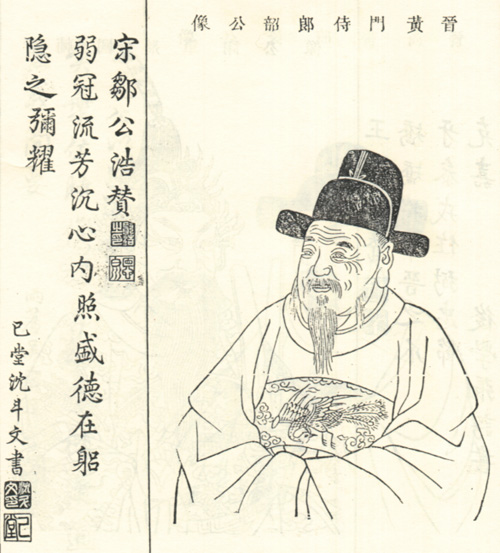 晉黃門侍郎韶公像
宋鄒公浩赞
弱冠流芳沉心内照盛德在躳
隐之彌耀
已堂沈斗文書